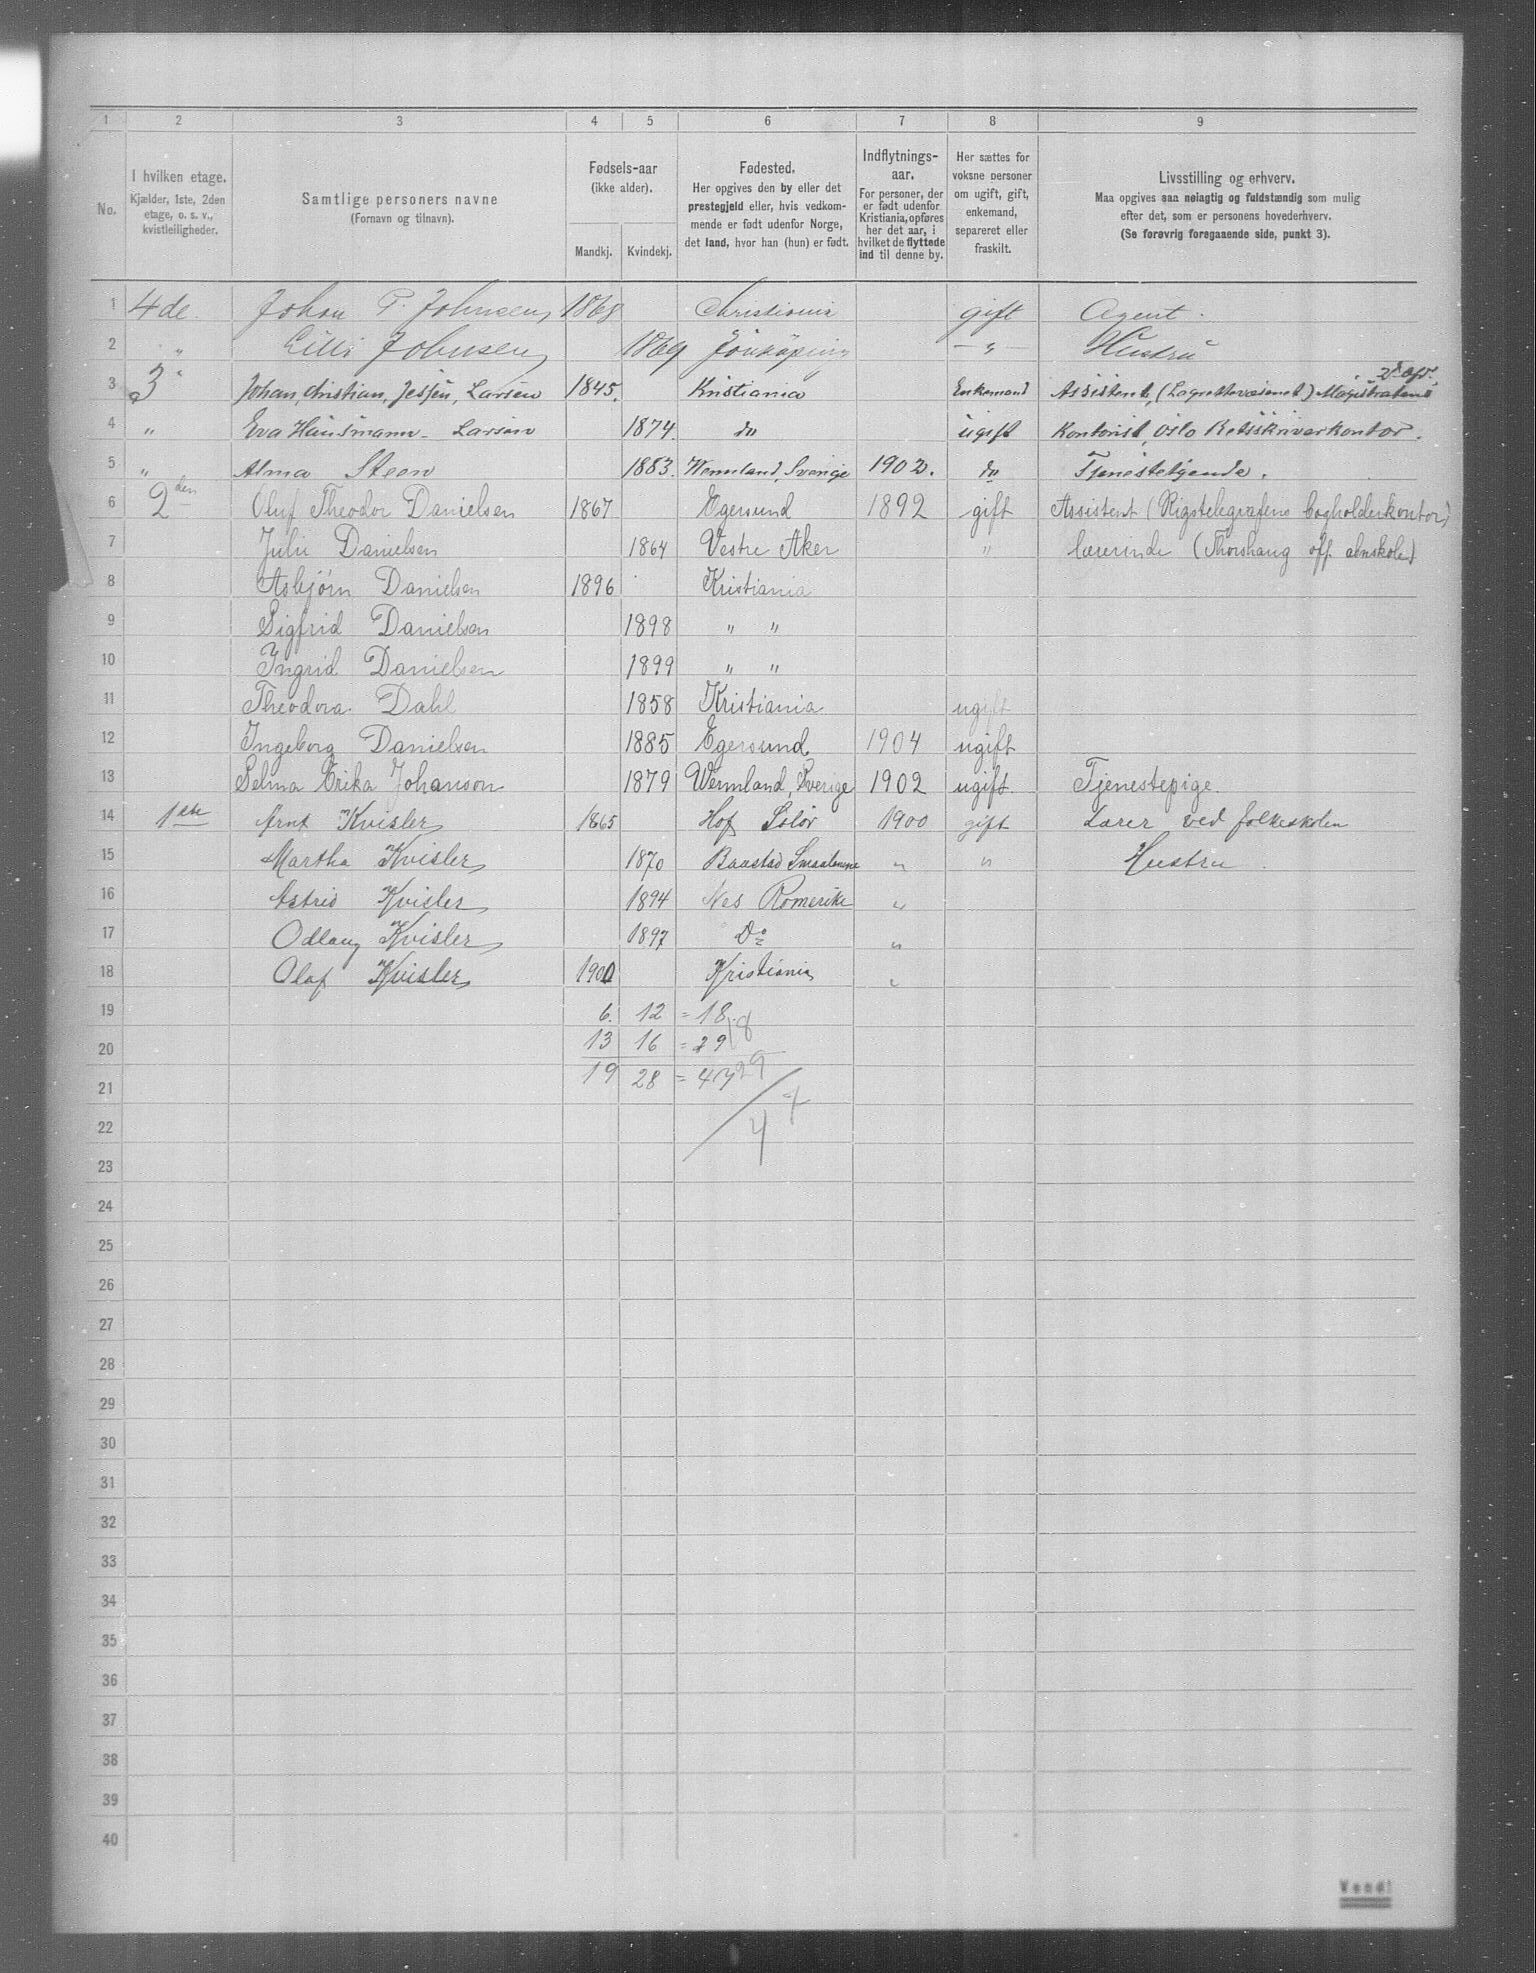 1 2 3 4 5 6 7 8 9
No.
I hvilken etage.
Kjælder, 1ste, 2den
etage, o. s. v.,
kvistleiligheder.
Samtlige personers navne
(Fornavn og tilnavn).
Fødsels-aar
(ikke alder).
Mandkj. Kvindekj.
Fødested.
Her opgives den by eller det
prestegjeld eller, hvis vedkom-
mende er født udenfor Norge,
det land, hvor han (hun) er født.
Indflytnings-
aar.
For personer, der
er født udenfor
Kristiania, opføres
her det aar, i
hvilket de flyttede
ind til denne by.
Her sættes for
voksne personer
om ugift, gift,
enkemand,
separeret eller
fraskilt.
Livsstilling og erhverv.
Maa opgives saa nøiagtig og fuldstændig som mulig
efter det, som er personens hovederhverv.
(Se forøvrig foregaaende side, punkt 3).
1 4de Johan P. Johnsen 1868 Christiania gift Agent.
2 " Lilli Johnsen 1869 Jönköping — " — Hustru
3 3 " Johan, Christian, Jessen, Larsen 1845. Kristiania Enkemand Assistent, (Lagrettevæsenet) Magistratens 2. afd.
4 " Eva Hausmann- Larsen 1874. do ugift Kontorist, Oslo Retsskriverkontor.
5 " Alma Steen 1883. Wermland, Sverige 1902. do Tjenestetgende.
6 2den Oluf Theodor Danielsen 1867 Egersund 1892 gift Assistent (Rigstelegrafens bogholderkontor)
7 Julie Danielsen 1864 Vestre Aker " lærerinde (Thorshaug off. alnskole)
8 Asbjørn Danielsen 1896 Kristiania
9 Sigfrid Danielsen 1898 " "
10 Ingrid Danielsen 1899 " "
11 Theodora Dahl 1858 Kristiania ugift
12 Ingeborg Danielsen 1885 Egersund 1904 ugift
13 Selma Erika Johanson 1879 Wermland, Sverige 1902 ugift. Tjenestepige.
14 1ste Arnt Kvisler 1865 Hof Solør 1900 gift Lærer ved folkeskolen
15 Martha Kvisler 1870 Baastad Smaalenene " " Hustru.
16 Astrid Kvisler 1894 Nes Romerike "
17 Odlaug Kvisler 1897 Do "
18 Olaf Kvisler 1900 Kristiania "
19 6. 12 = 18. 18
20 13 16 = 29 29
21 19 28 = 47
22 47
23
24
25
26
27
28
29
30
31
32
33
34
35
36
37
38
39
40
Vend!